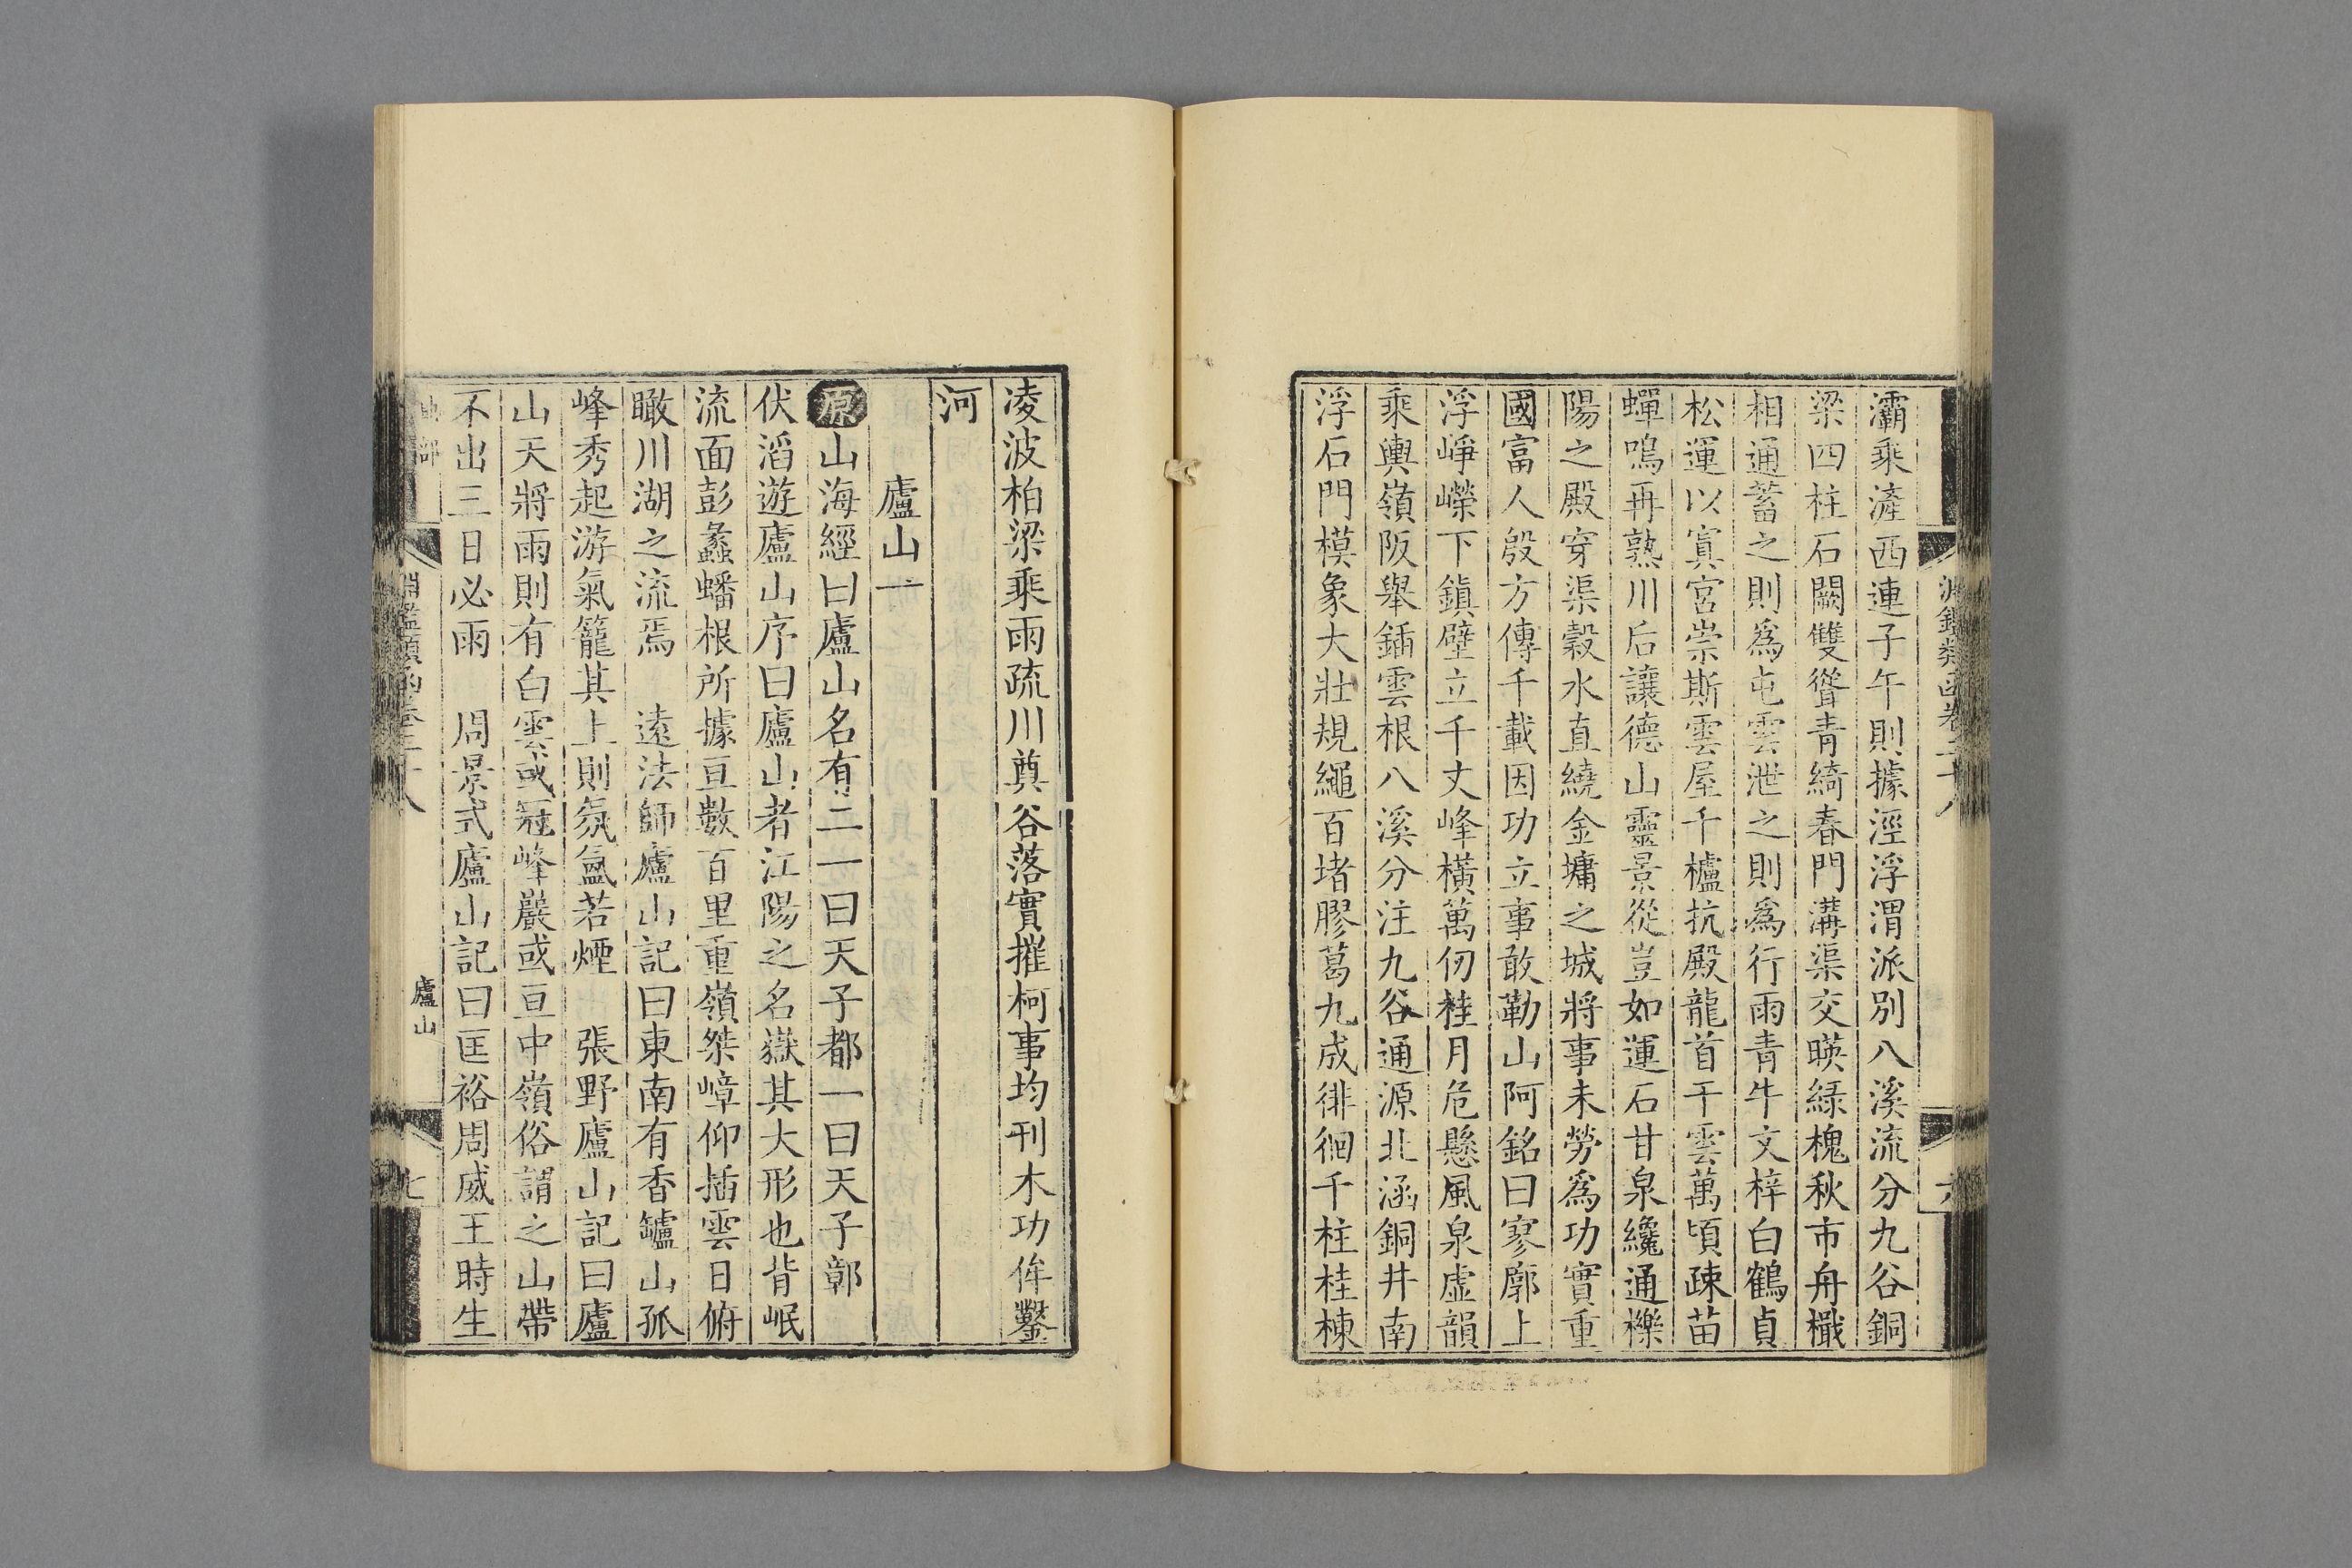 灞乘滻西連子午則據涇浮渭派別八溪流分九谷銅
梁四柱石闕雙聳青綺春門溝渠交暎緑槐秋市舟檝
相通蓄之則爲屯雲泄之則爲行雨青牛文梓白鶴貞
松運以寘宮崇斯雲屋千櫨抗殿龍首干雲萬頃疎苗
蟬鳴再熟川后讓德山靈景從豈如運石甘泉纔通櫟
陽之殿穿渠穀水直繞金墉之城將事未勞爲功實重
國富人殷方傳千載因功立事敢勒山阿銘曰寥廓上
浮崢嶸下鎭壁立千丈峰橫萬仞桂月危懸風泉虛韻
乘輿嶺阪舉鍤雲根八溪分注九谷通源北涵銅井南
浮石門模象大壯規繩百堵膠葛九成徘徊千柱桂棟
凌波柏梁乘雨疏川奠谷落實摧柯事均刊木功侔鑿
河
廬山一
原山海經曰廬山名有二一曰天子都一曰天子鄣
伏滔遊廬山序曰廬山者江陽之名嶽其大形也背岷
流面彭蠡蟠根所據亘數百里重嶺桀嶂仰插雲日俯
瞰川湖之流焉 遠法師廬山記曰東南有香鑪山孤
峰秀起游氣籠其上則氛氳若煙 張野廬山記曰廬
山天將雨則有白雲或冠峰巖或亘中嶺俗謂之山帶
不出三日必雨 周景式廬山記曰匡裕周威王時生
淵鑑類函卷二十八
廬山
七